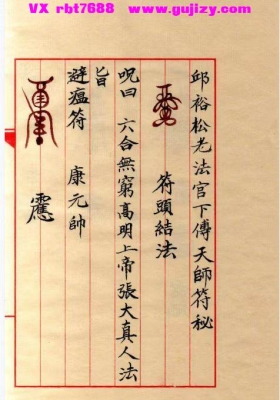 VX rbt7688 www.gujizy.com
邱裕松老法官下傳天師符秘
符頭結法
咒曰 六合無窮高明上帝張大真人法
旨
避瘟符 康元帥
靈